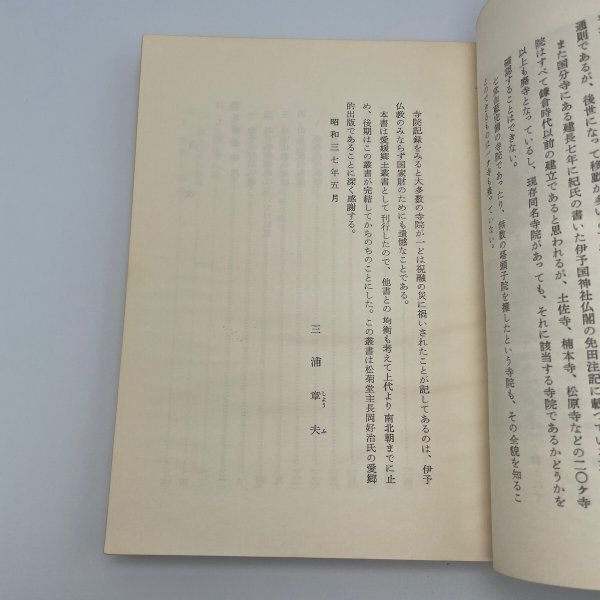 通則であるが、後世になって移動が多い
また国分寺にある建長七年に紀氏の書いた伊予国神社仏閣の免田注記に載っている
院はすべて鎌倉時代以前の建立であると思われるが、土佐寺、楠本寺、松原寺などの二〇ヶ寺
以上も廃寺となっているし、現存同名寺院があっても、それに該当する寺院であるかどうかを
確認することはできない。
の寺院であったり、無数の塔頭子院を擁したという寺院も、その全貌を知るこ
寺院記録をみると大多数の寺院が一どは祝融の災に禍いされたことが記してあるのは、伊予
仏教のみならず国家財のためにも遺憾なことである。
本書は愛媛郷土叢書として刊行したので、他書との均衡も考えて上代より南北朝までに止
め、後期はこの叢書が完結してからのちのことにした。この叢書は松菊堂主長岡好治氏の愛郷
的出版であることに深く感謝する。
昭和三七年五月
三浦章夫
しょうふ